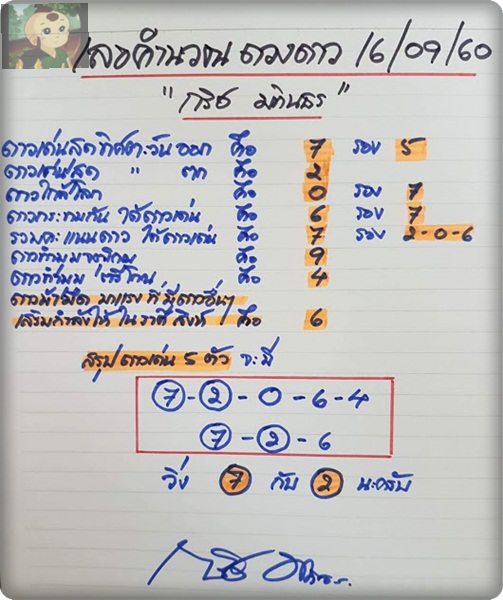 เลขคำนวณ ดวงดาว 16/09/60
"กริช มตินธร"
ดาวเด่นสุด ทิศตะวันออก คือ 7 รอง 5
ดาวเด่นสุด " ตก คือ 2
ดาวใกล้โลก คือ 0 รอง 7
ดาวกระทบกัน ได้ดาวเด่น คือ 6 รอง 7
รวมคะแนนดาว ได้ดาวเด่น คือ 7 รอง 2-0-6
ดาวทำมุม คือ 9
ดาวทำมุม คือ 4
ดาวน้ำมืด มาแรง ที่มีดาวอื่นๆ
เสริมกำลังให้ ในราศี สิงห์ คือ 6
สรุป ดาวเด่น 5 ตัว จะมี
7-2-0-6-4
7-2-6
วิ่ง 7 กับ 2 นะครับ